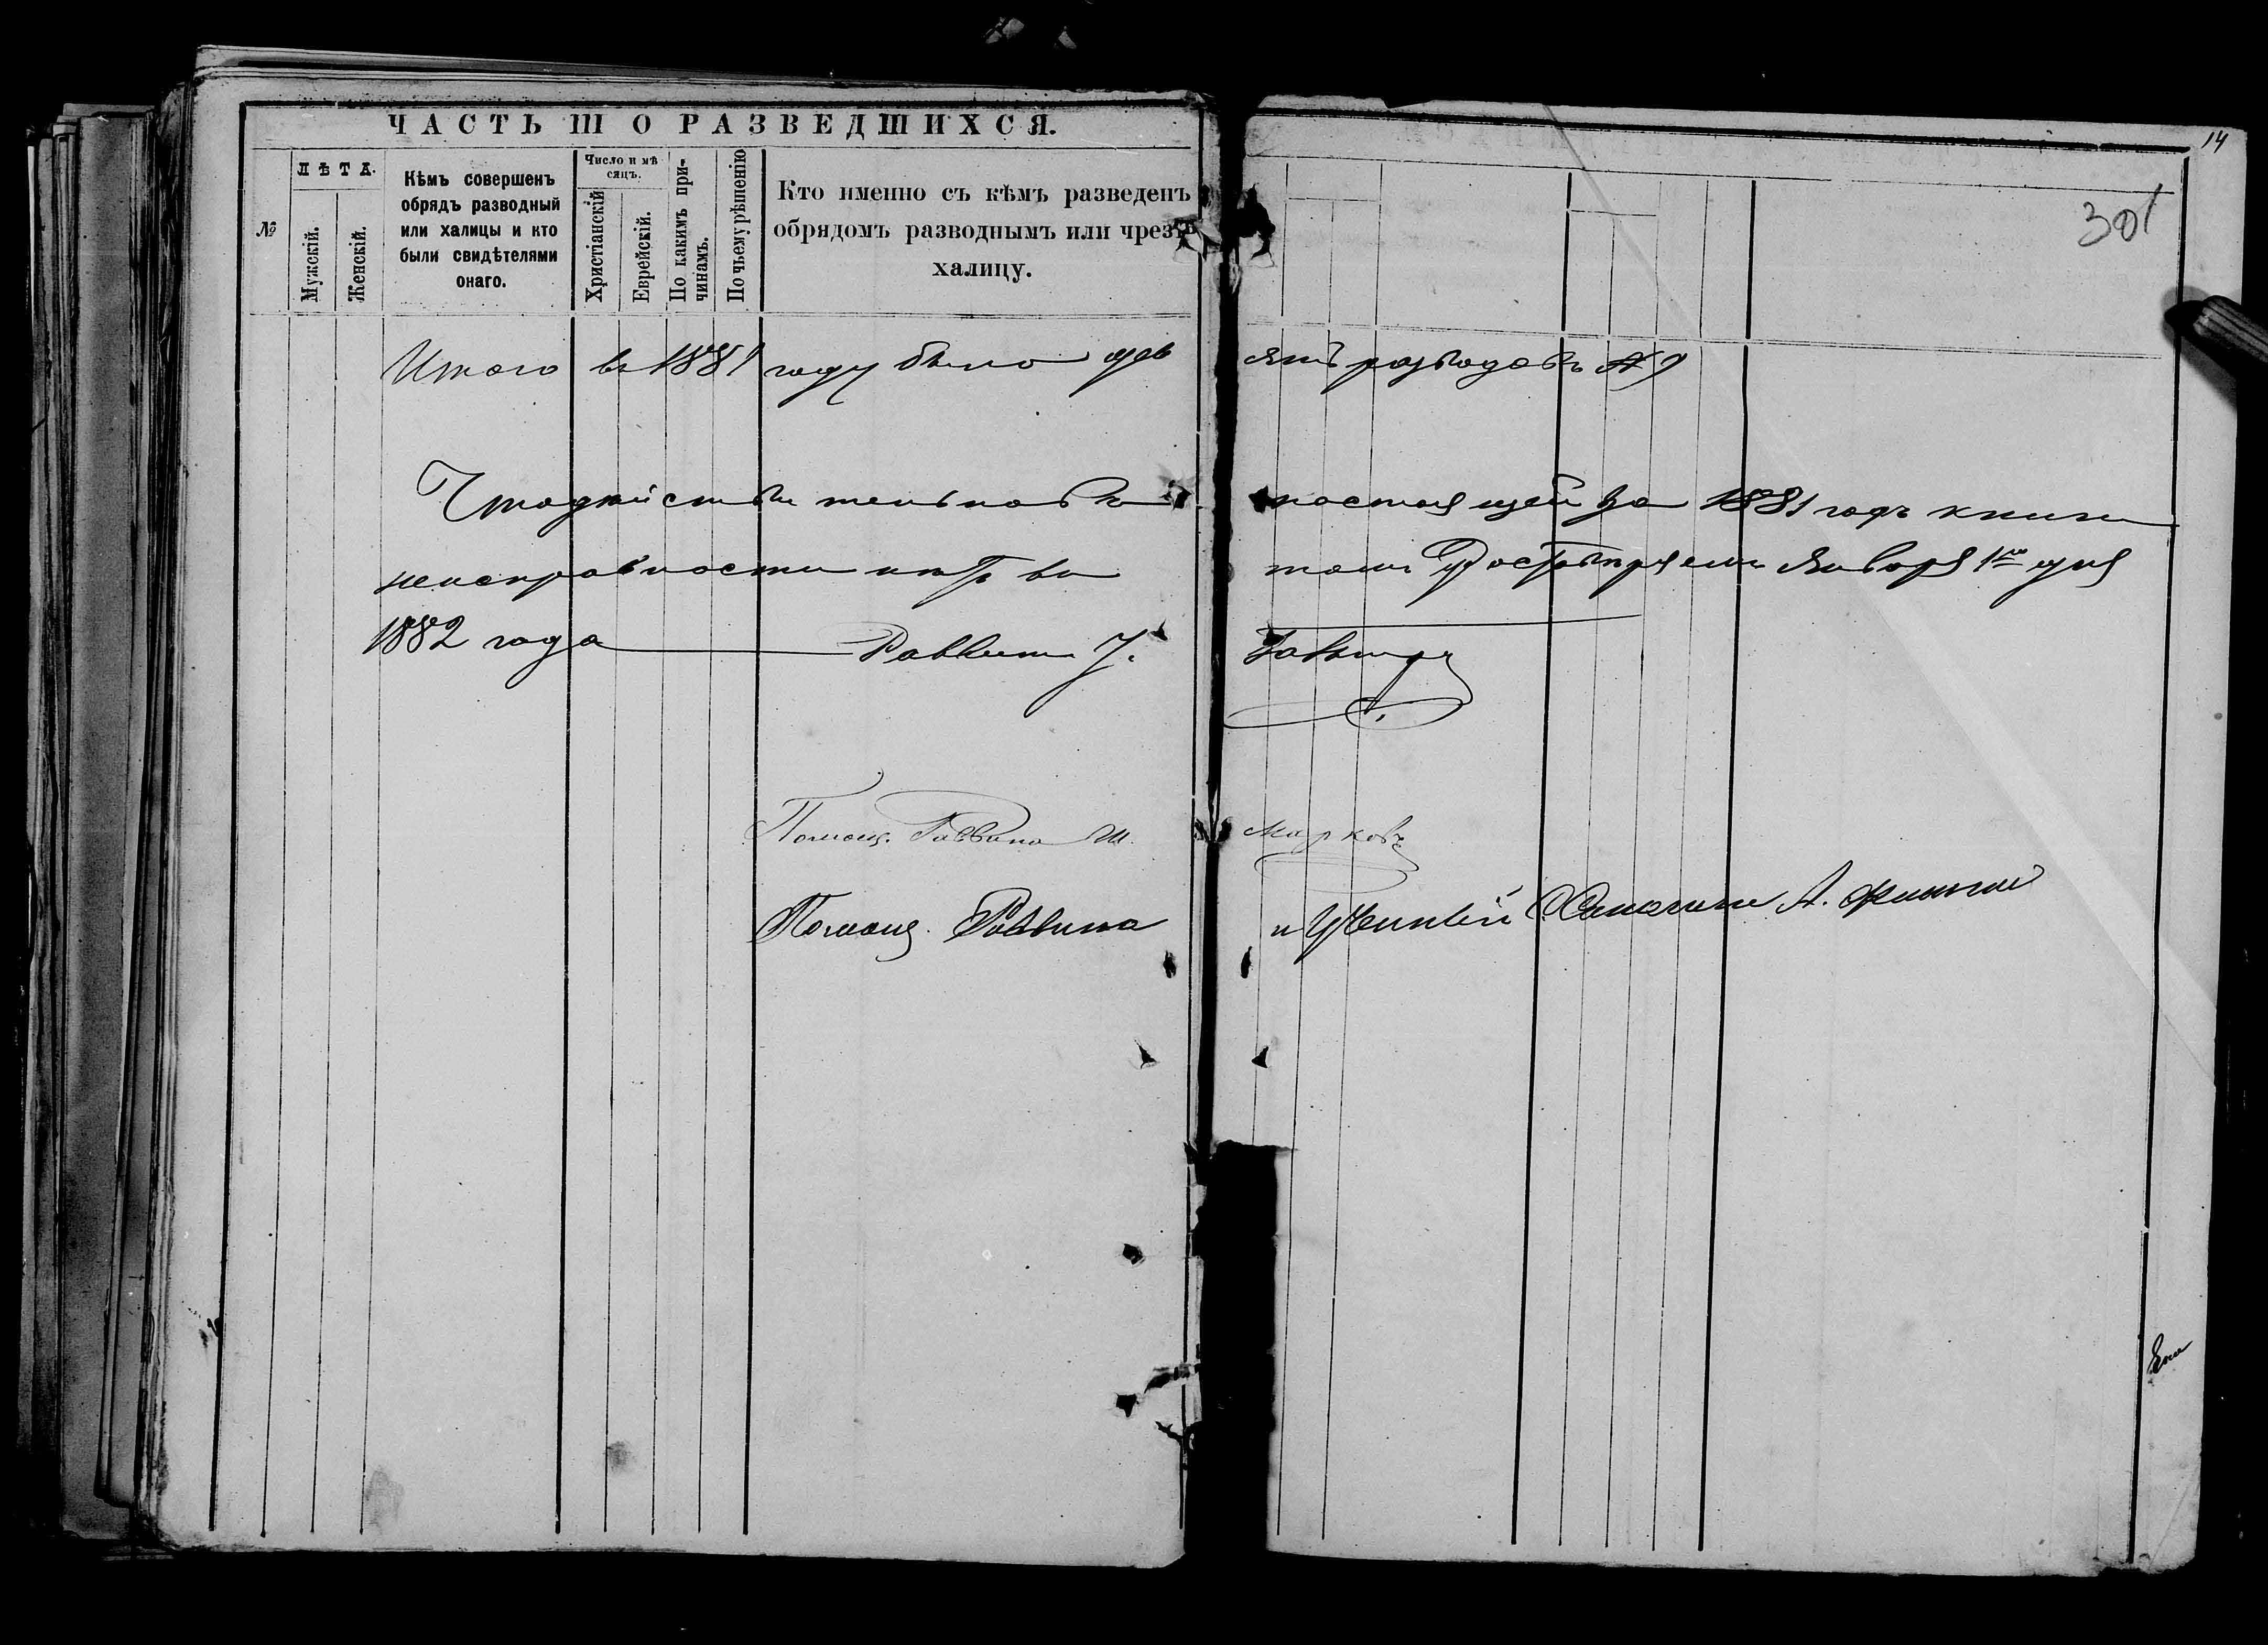 ЧАСТЬ III О РАЗВЕДШИХСЯ.
№
ЛѢТА.
Мужскій.
Женскій.
Кѣмъ совершенъ
обрядъ разводный
или халицы и кто
были свидѣтелями
онаго.
Число и мѣ
сяцъ.
Христіанскій
Еврейскій.
По какимъ при-
чинамъ.
По чьему рѣшенію
Кто именно съ кѣмъ разведенъ
обрядомъ разводнымъ или чрезъ
халицу.
14
301
Итого въ 1881 году было девять разводовъ № 9
Что действительно въ настоящей за 1881 годъ книги
неисправности нѣтъ въ томъ удостовѣряемъ Января 1го дня
1882 года Раввинъ
Помощ. Раввина М. Марковъ
Помощ. Раввина и Ученый А.